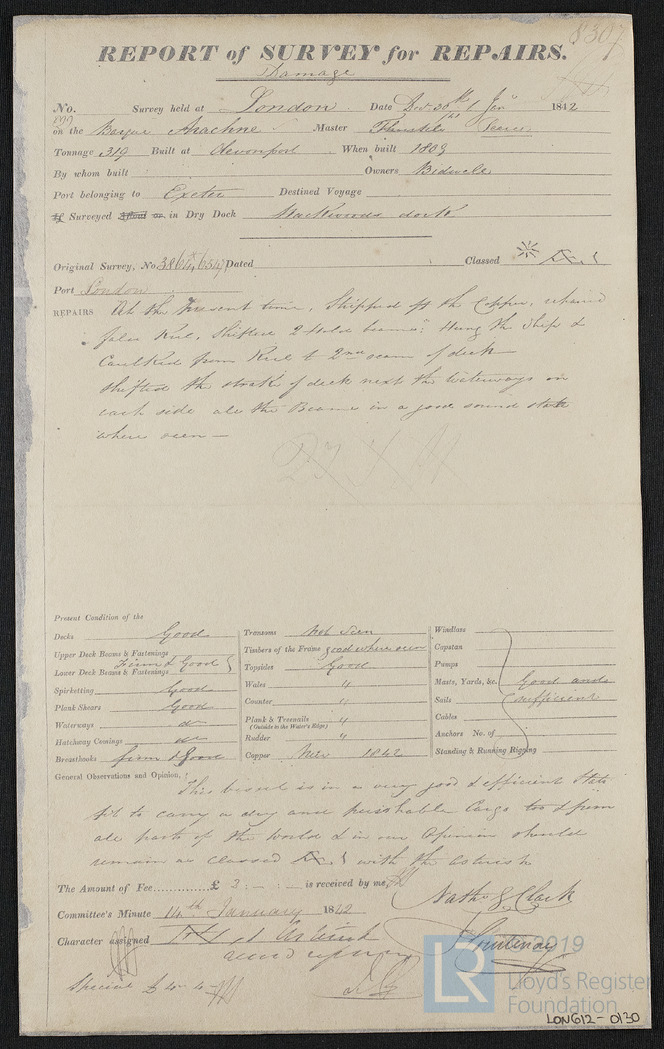 8307
REPORT of SURVEY for REPAIRS.
Damage
No. Survey held at London Date Dec 30th & Jan 1842
on the Barque Arachne Master
Tonnage 319 Built at Devonport When built 1809
By whom built Owners Bidwell
Port belonging to Exeter Destined Voyage
If Surveyed Afloat or in Dry Dock Mackwoods dock
Original Survey, No. Dated Classed Æ.1
Port London
REPAIRS At the Present time, Stripped off the Copper,
false Keel, Shifted 2 Hold beams, Hung the Ship &
Caulked from Keel to 2nd seam of deck
Shifted the strake of deck next the Waterways on
each side all the Beams in a good sound state
where seen
Present Condition of the
Decks Good
Upper Deck Beams & Fastenings
Lower Deck Beams & Fastenings Firm & Good
Spirketting Good
Plank Shears Good
Waterways do
Hatchway Comings do
Breasthooks firm & Good
Transoms Not Seen
Timbers of the Frame good where seen
Topsides Good
Wales "
Counter "
Plank & Treenails "
(Outside to the Water's Edge)
Rudder "
Copper New 1842
Windlass
Capstan
Pumps
Masts, Yards, &c. Good and
Sails sufficient
Cables
Anchors No. of
Standing & Running Rigging
General Observations and Opinion,
This vessel is in a very good & efficient state
fit to carry a dry and perishable Cargo to & from
all parts of the World & in our Opinion should
remain as Classed Æ.1 with the asterisk
The Amount of Fee £ 3 : - : - is received by me,
Nathl G Clark
Committee's Minute 14th January 1842
Character assigned
J Courtenay
Special £4-4-
2019
LR
Lloyd's Register
Foundation
LON612-0130